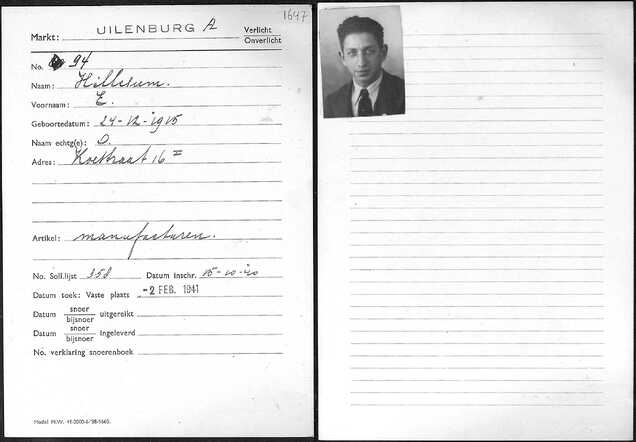 1647
Markt: UILENBURG A Verlicht
Onverlicht
No. 94
Naam: Hillesum.
Voornaam: E.
Geboortedatum: 24-12-1915
Naam echtg(e): O.
Adres: Koestraat 16 II
Artikel: manufacturen.
No. Soll.lijst 358. Datum inschr. 15-10-40
Datum toek: Vaste plaats -2 FEB. 1941
Datum snoer
bijsnoer uitgereikt
Datum snoer
bijsnoer ingeleverd
No. verklaring snoerenboek
Model M.W.